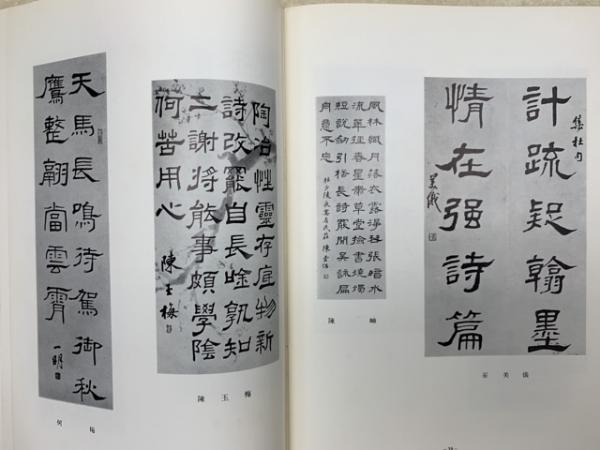 集杜句
計疏疑翰墨
情在强詩篇
美儀
美儀
風林纖月落衣露淨琴張暗水
流華徑春星帶草堂檢書燒燭
短說劍引杯長詩罷聞吳詠扁
舟意不忘
杜少陵夜宴左氏莊 陳
陳
陶冶性靈存底物新
詩改罷自長吟孰知
二謝將能事頗學陰
何苦用心
陳玉梅
陳玉梅
天馬長鳴待駕御秋
鷹整翮當雲霄
一明
何